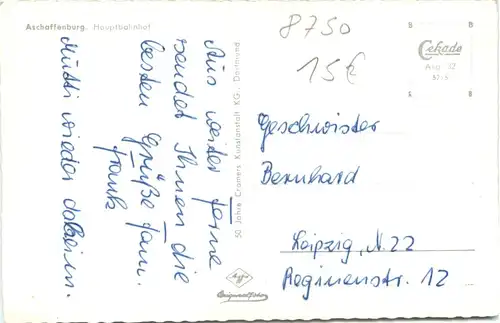 Aschaffenburg. Hauptbahnhof
8750
15€
Cekade
Aus weiter Ferne
sendet Ihnen die
besten Grüße fam.
Frank
Mutti wieder daheim.
50 Jahre Cramers Kunstanstalt KG., Dortmund
Geschwister
Bernhard
Leipzig, N.22
Regimenstr. 12
Agfa
Originalfoto